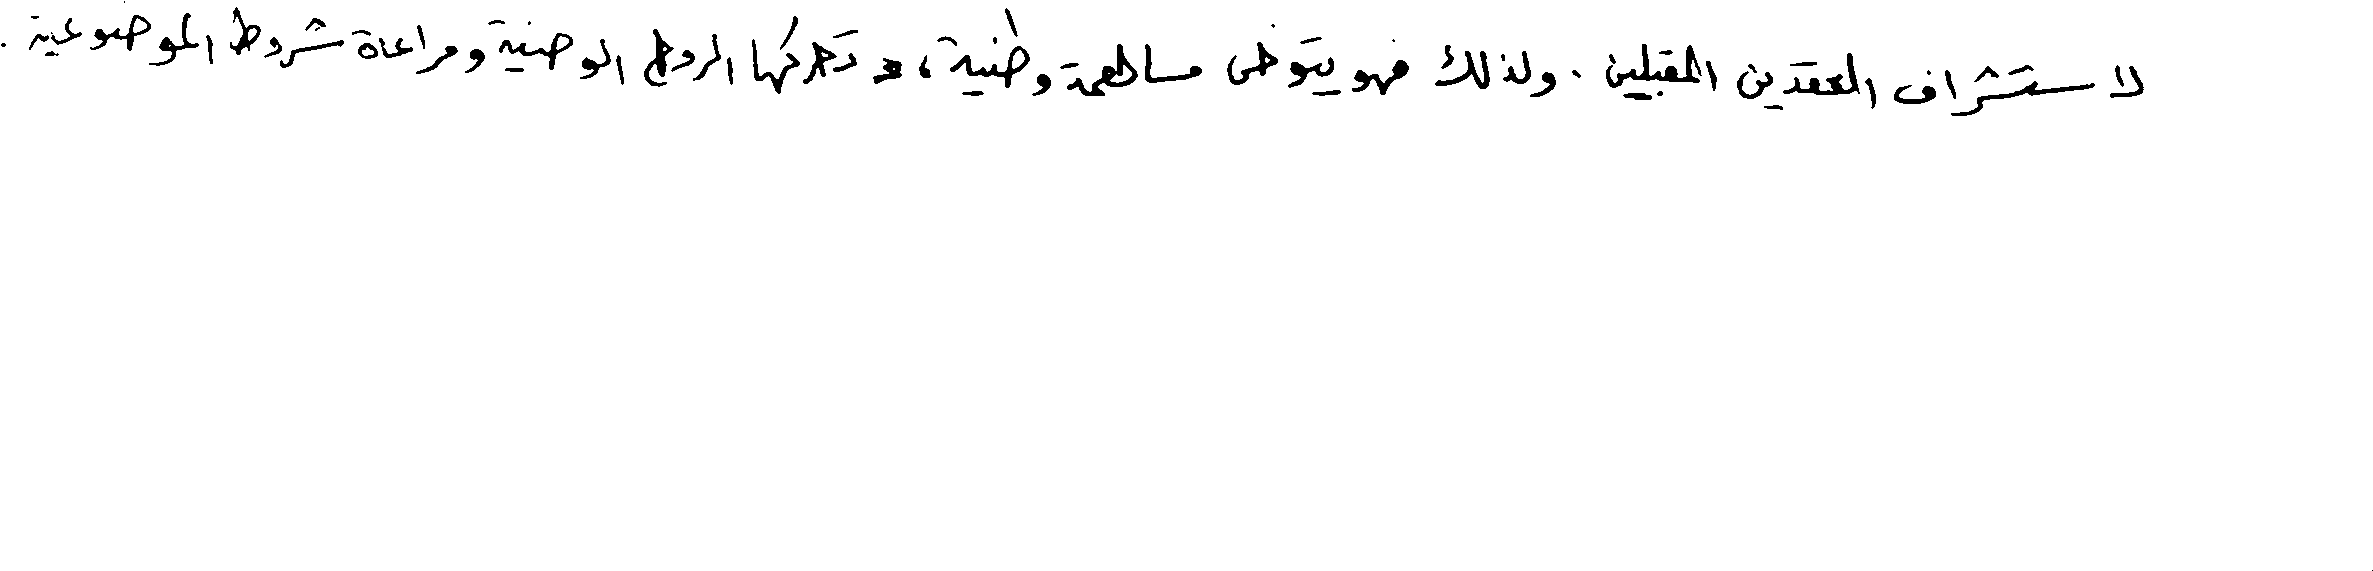 لاستشراف العقدين المقبلين . ولذلك فهو يتوخى مساهمة وطنية ، تحركها الروح الوضنية ومراعاة شروط الموضوعية .